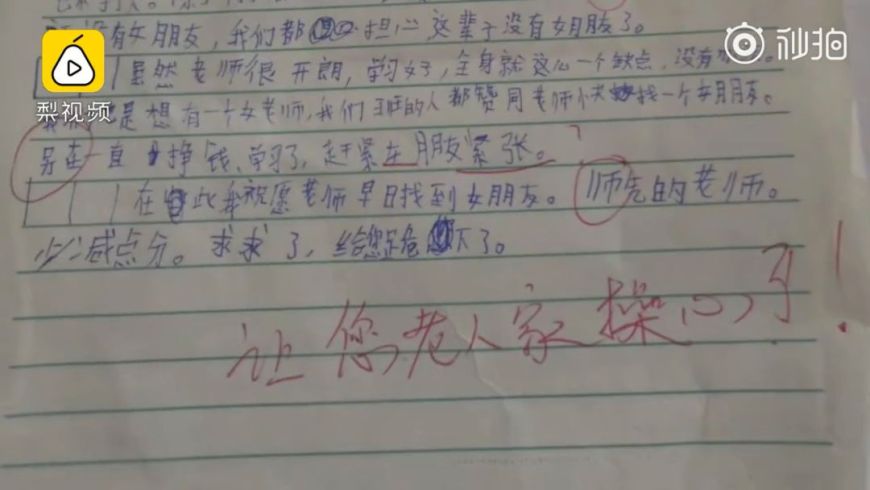 有女朋友，我们都担心这辈子没有女朋友了。
秒拍
虽然老师很开朗，学习好，全身就这么一个缺点，没有
梨视频
是想有一个女老师，我们班的人都赞同老师快找一个女朋友。
另在一直挣钱、学习了，赶紧在朋友紧张。
在此我祝愿老师早日找到女朋友。师先的老师。
少减点分。求求了，给您跪下了。
让您老人家操心了！